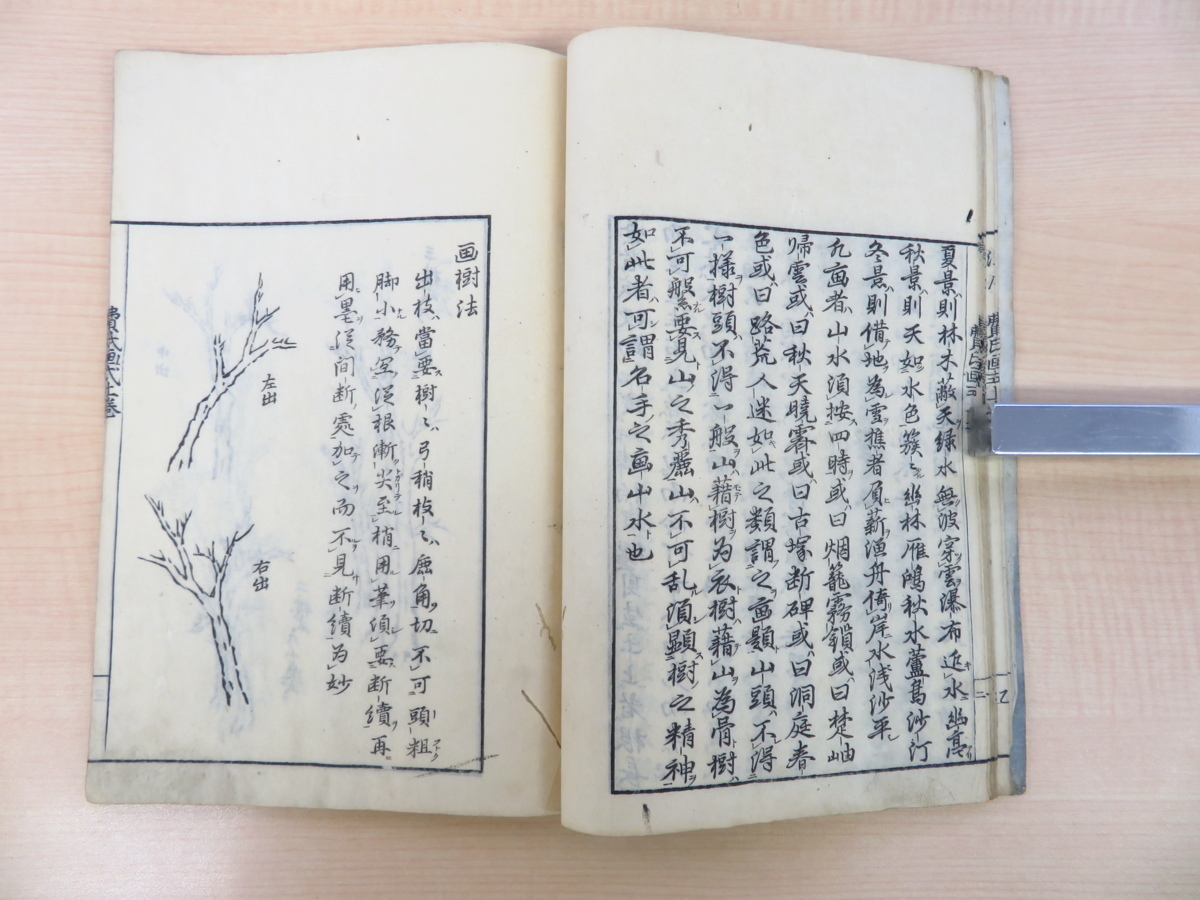 夏景則林木蔽天緑水無波穿雲瀑布近水幽亭
秋景則天如水色簇〻幽林雁鴻秋水蘆鳥沙汀
冬景則借地為雪樵者負薪漁舟倚岸水浅沙平
凢画者山水湏按四時或曰烟籠霧鎖或曰楚岫
帰雲或曰秋天曉霽或曰古塚断碑或曰洞庭春
色或曰路荒人迷如此之類謂之画題山頭不得
一様樹頭不得一般山藉樹为衣樹藉山為骨樹
不可般要見山之秀麗山不可乱湏顕樹之精神
如此者可謂名手之画山水也
画樹法
出枝當要樹〻弓稍枝〻鹿角切不可頭粗
脚小務宜従根漸尖至梢用筆湏要断續再
用墨従间断處加之而不見断續为妙
左出
右出
費氏画式上巻